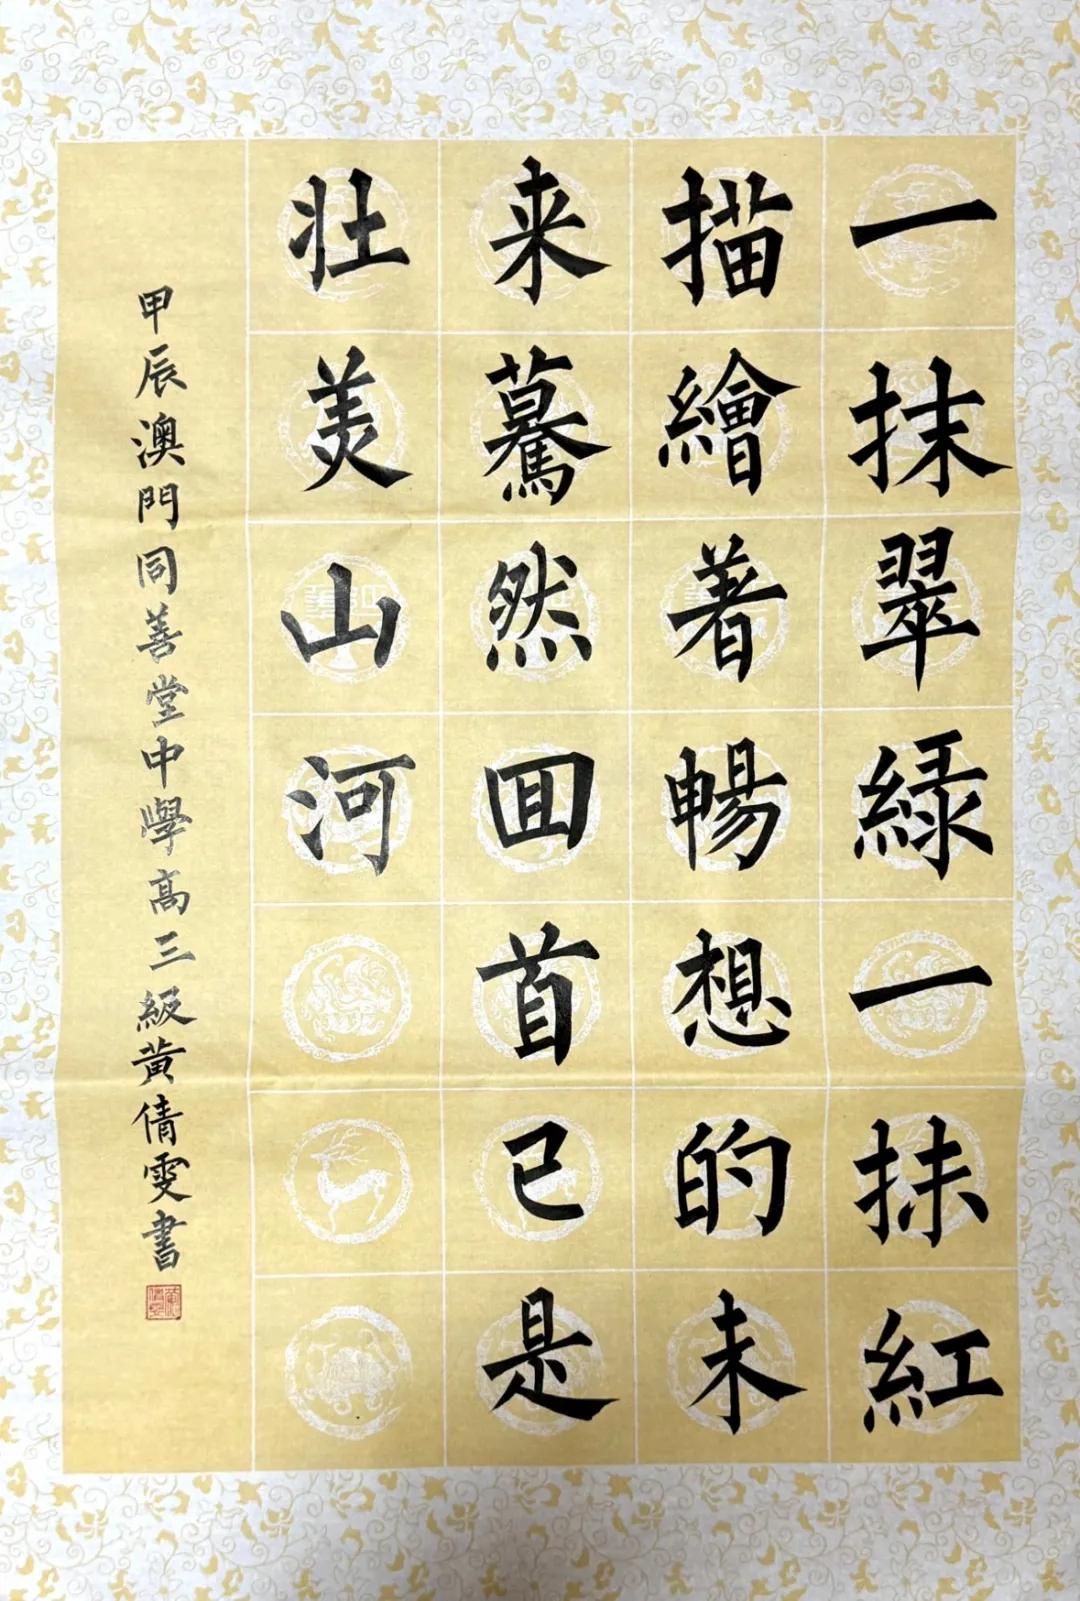 一抹翠緑一抹紅
描繪着暢想的未
来驀然囬首已是
壮美山河
甲辰澳門同善堂中學高三級黄倩雯書